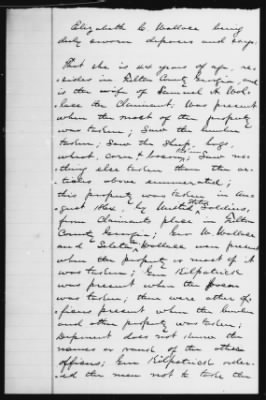 Elizabeth C. Wallace being
duly sworn deposes and says
That she is 44 years of age, re-
sides in Fulton County Georgia, and
is the wife of Samuel H. Wal-
lace the Claimant. Was present
when the most of the property
was taken; Saw the
taken; Saw the Sheep, hogs,
wheat, corn & Saw no-
thing else taken than the ar-
ticles above enumerated;
this property was taken in Au-
gust 1864 by United States Soldiers,
from Claimants place in Fulton
County Georgia; Geo W. Wallace
and Wallace were present
when the property or most of it
was taken; Genl Kilpatrick
was present when the
was taken, there were other of-
ficers present when the
and other property was taken;
Deponent does not know the
names or rank of the other
officers; Genl Kilpatrick order-
ed the men not to take the